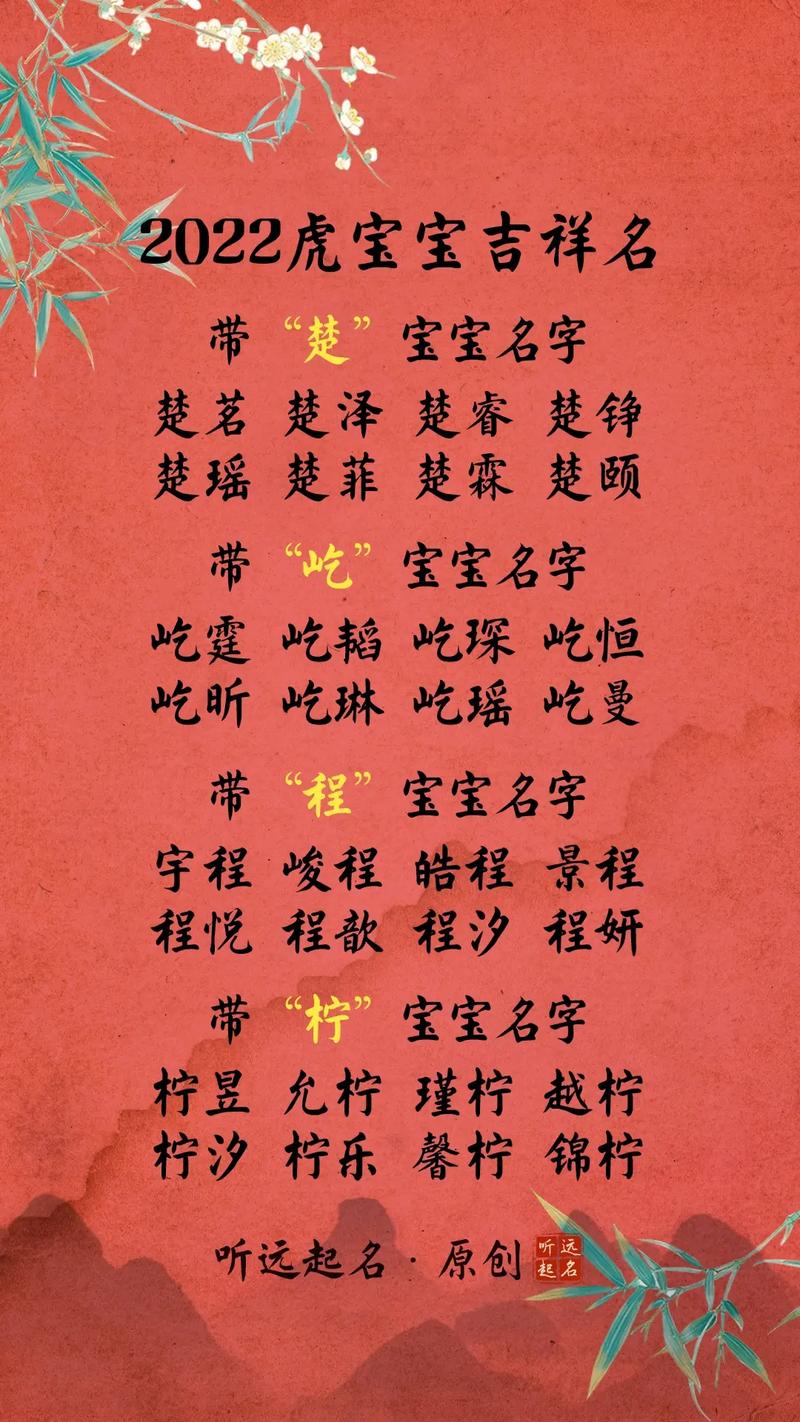 2022虎宝宝吉祥名
带 “楚” 宝宝名字
楚茗 楚泽 楚睿 楚铮
楚瑶 楚菲 楚霖 楚颐
带 “屹” 宝宝名字
屹霆 屹韬 屹琛 屹恒
屹昕 屹琳 屹瑶 屹曼
带 “程” 宝宝名字
宇程 峻程 皓程 景程
程悦 程歆 程汐 程妍
带 “柠” 宝宝名字
柠昱 允柠 瑾柠 越柠
柠汐 柠乐 馨柠 锦柠
听远起名·原创
听远
起名